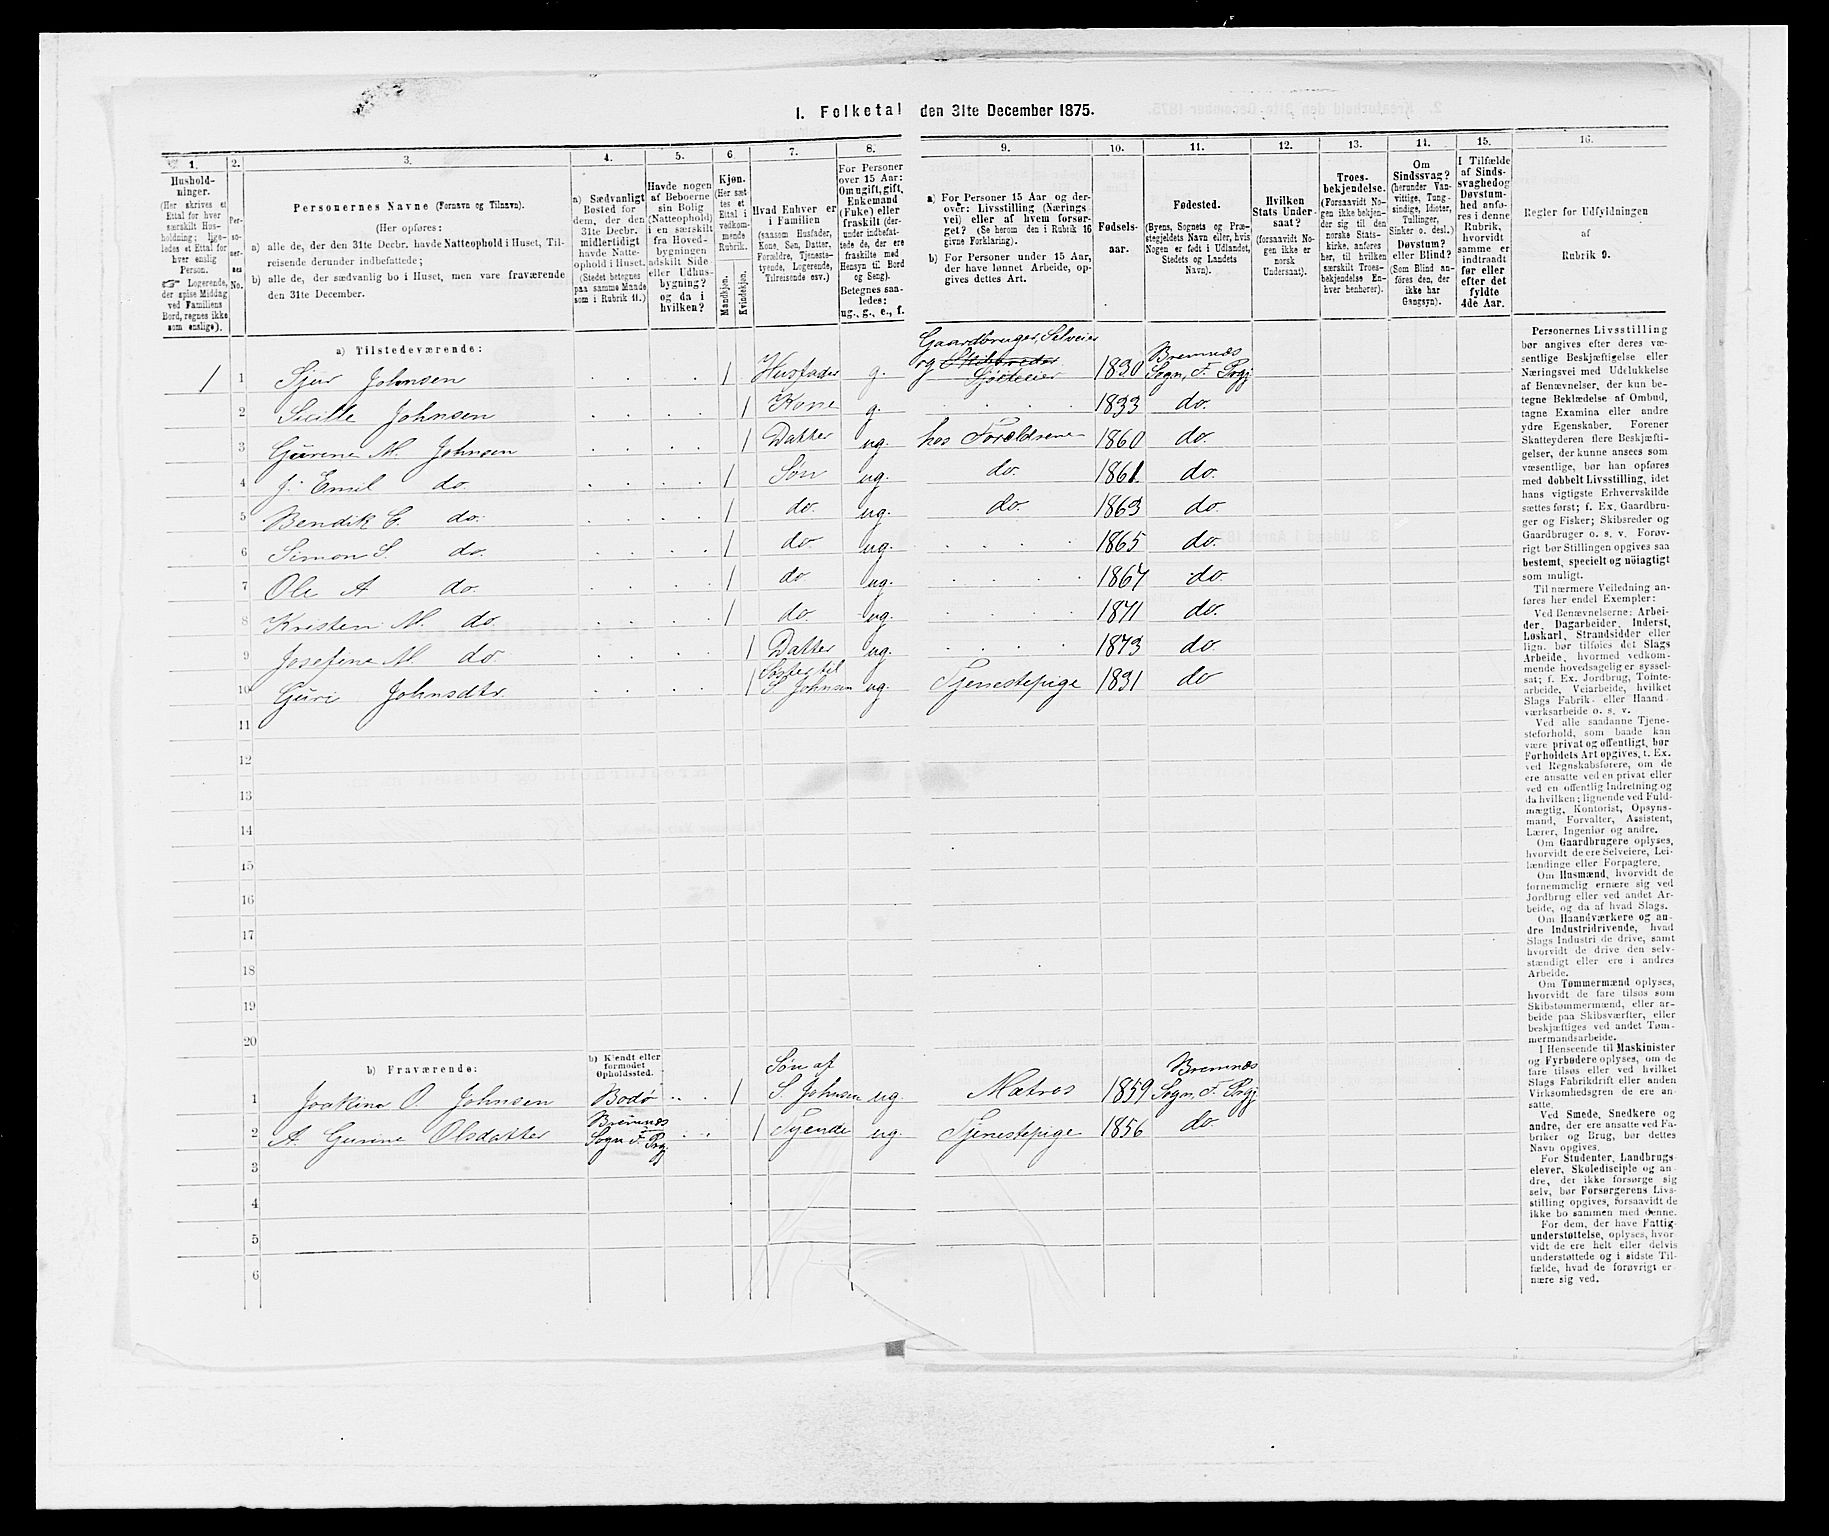 1. Folketal den 31te December 1875.
1. 2. 3. 4. 5. 6. 7. 8. 9. 10. 11. 12. 13. 14. 15. 16.
Hushold-
ninger.
(Her skrives et
Ettal for hver
særskilt Hus-
holdning; lige-
ledes et Ettal for
hver enslig
Person.
☞ Logerende,
der spise Middag
ved Familiens
Bord, regnes ikke
som enslige).
Per-
so-
ner-
nes
No.
Personernes Navne (Fornavn og Tilnavn).
(Her opføres:
a) alle de, der den 31te Decbr. havde Natteophold i Huset, Til-
reisende derunder indbefattede;
b) alle de, der sædvanlig bo i Huset, men vare fraværende
den 31te December.
a) Sædvanligt
Bosted for
dem, der den
31te Decbr.
midlertidigt
havde Natte-
ophold i Huset.
(Stedet betegnes
paa samme Maade
som i Rubrik 11.)
Havde nogen
af Beboerne
sin Bolig
(Natteophold)
i en særskilt
fra Hoved-
bygningen
adskilt Side-
eller Udhus-
bygning?
og da i
hvilken?
Kjøn.
(Her sæt-
tes et
Ettal i
vedkom-
mende
Rubrik.
Mandkjøn.
Kvindekjøn.
Hvad Enhver er
i Familien
(saasom Husfader,
Kone, Søn, Datter,
Forældre, Tjeneste-
tyende, Logerende,
Tilreisende osv.)
For Personer
over 15 Aar:
Om ugift, gift,
Enkemand
(Fuke) eller
fraskilt (der-
under indbefat-
tede de, der ere
fraskilte med
Hensyn til Bord
og Seng).
Betegnes saa-
ledes:
ug., g., e., f.
a) For Personer 15 Aar og der-
over: Livsstilling (Nærings-
vei) eller af hvem forsør-
get? (Se herom den i Rubrik 16
givne Forklaring).
b) For Personer under 15 Aar,
der have lønnet Arbeide, op-
gives dettes Art.
Fødsels-
aar.
Fødested.
(Byens, Sognets og Præ-
stegjeldets Navn eller, hvis
Nogen er født i Udlandet,
Stedets og Landets
Navn).
Hvilken
Stats Under-
saat?
(forsaavidt No-
gen ikke er
norsk
Undersaat).
Troes-
bekjendelse.
(Forsaavidt No-
gen ikke bekjen-
der sig til den
norske Stats-
kirke, anføres
her, til hvilken
særskilt Troes-
bekjendelse En-
hver henhører).
Om
Sindssvag?
(herunder Van-
vittige, Tung-
sindige, Idioter,
Tullinger,
Sinker o. desl.)
Døvstum?
eller Blind?
(Som Blind an-
føres den, der
ikke har
Gangsyn).
I Tilfælde
af Sinds-
svaghed og
Døvstum-
hed anfø-
res i denne
Rubrik,
hvorvidt
samme er
indtraadt
før eller
efter det
fyldte
4de Aar.
Regler for Udfyldningen
af
Rubrik 9.
a) Tilstedeværende:
Gaardbruger, Selveier
og Skibsreder
1 1 Sjur Johnsen 1 Husfader g. Sjøeteier 1830 Bremnæs Sogn, F. Prgj
2 Sicille Johnsen 1 Kone g. 1833 do.
3 Gurine M. Johnsen 1 Datter ug. hos Forældrene 1860 do.
4 J. Emil do. 1 Søn ug. do. 1861 do.
5 Bendik C. do. 1 do. ug. do. 1863 do.
6 Simon S. do. 1 do. ug. 1865 do.
7 Ole A do. 1 do ug. 1867 do.
8 Kristen M. do. 1 do. ug. 1871 do.
9 Josefine M. do 1 Datter ug. 1873 do.
10 Guri Johnsdtr 1 Søster til S Johnsen ug. Tjenestepige 1831 do
11
12
13
14
15
16
17
18
19
20
b) Fraværende:
b) Kjendt eller
formodet
Opholdssted.
1 Joakim O. Johnsen Bodø 1 Søn af S. Johnsen ug. Matros 1859 Bremnæs Sogn, F. Prgj
2 A. Gurine Olsdatter Bremnæs Sogn F. Prgj 1 Tyende ug. Tjenestepige 1856 do
3
4
5
6
Personernes Livsstilling
bør angives efter deres væ-
sentlige Beskjæftigelse eller
Næringsvei med Udelukkelse
af Benævnelser, der kun be-
tegne Beklædelse af Ombud,
tagne Examina eller andre
ydre Egenskaber. Forener
Skatteyderen flere Beskjæfti-
gelser, der kunne ansees som
væsentlige, bør han opføres
med dobbelt Livsstilling, idet
hans vigtigste Erhvervskilde
sættes først; f. Ex. Gaardbru-
ger og Fisker; Skibsreder og
Gaardbruger o. s. v. Forøv-
rigt bør Stillingen opgives saa
bestemt, specielt og nöiagtigt
som muligt.
Til nærmere Veiledning an-
føres her endel Exempler:
Ved Benævnelserne: Arbei-
der, Dagarbeider, Inderst,
Løskarl, Strandsidder eller
lign. bør tilføies det Slags
Arbeide, hvormed vedkom-
mende hovedsagelig er syssel-
sat; f. Ex. Jordbrug, Tomte-
arbeide, Veiarbeide, hvilket
Slags Fabrik- eller Haand-
værksarbeide o. s. v.
Ved alle saadanne Tjene-
steforhold, som baade kan
være privat og offentligt, bør
Forholdets Art opgives, t. Ex.
ved Regnskabsførere, om de
ere ansatte ved en privat eller
ved en offentlig Indretning og
da hvilken; lignende ved Fuld-
mægtig, Kontorist, Opsyns-
mand, Forvalter, Assistent,
Lærer, Ingeniør og andre.
Om Gaardbrugere oplyses,
hvorvidt de ere Selveiere, Lei-
lændinge eller Forpagtere.
Om Husmænd, hvorvidt de
fornemmelig ernære sig ved
Jordbrug eller ved andet Ar-
beide, og da af hvad Slags.
Om Haandværkere og an-
dre Industridrivende, hvad
Slags Industri de drive, samt
hvorvidt de drive den selv-
stændigt eller ere i andres
Arbeide.
Om Tømmermænd oplyses,
hvorvidt de fare tilsøs som
Skibstømmermænd, eller ar-
beide paa Skibsværfter, eller
beskjæftiges ved andet Tøm-
mermandsarbeide.
I Henseende til Maskinister
og Fyrbødere oplyses, om de
fare tilsøs eller ved hvilket
Slags Fabrikdrift eller anden
Virksomhedsgren de ere an-
satte.
Ved Smede, Snedkere og
andre, der ere ansatte ved Fa-
briker og Brug, bør dettes
Navn opgives.
For Studenter, Landbrugs-
elever, Skoledisciple og an-
dre, der ikke forsørge sig
selv, bør Forsørgerens Livs-
stilling opgives, forsaavidt de
ikke bo sammen med denne.
For dem, der have Fattig-
understøttelse, oplyses, hvor-
vidt de ere helt eller delvis
understøttede og i sidste Til-
fælde, hvad de forøvrigt er-
nære sig ved.